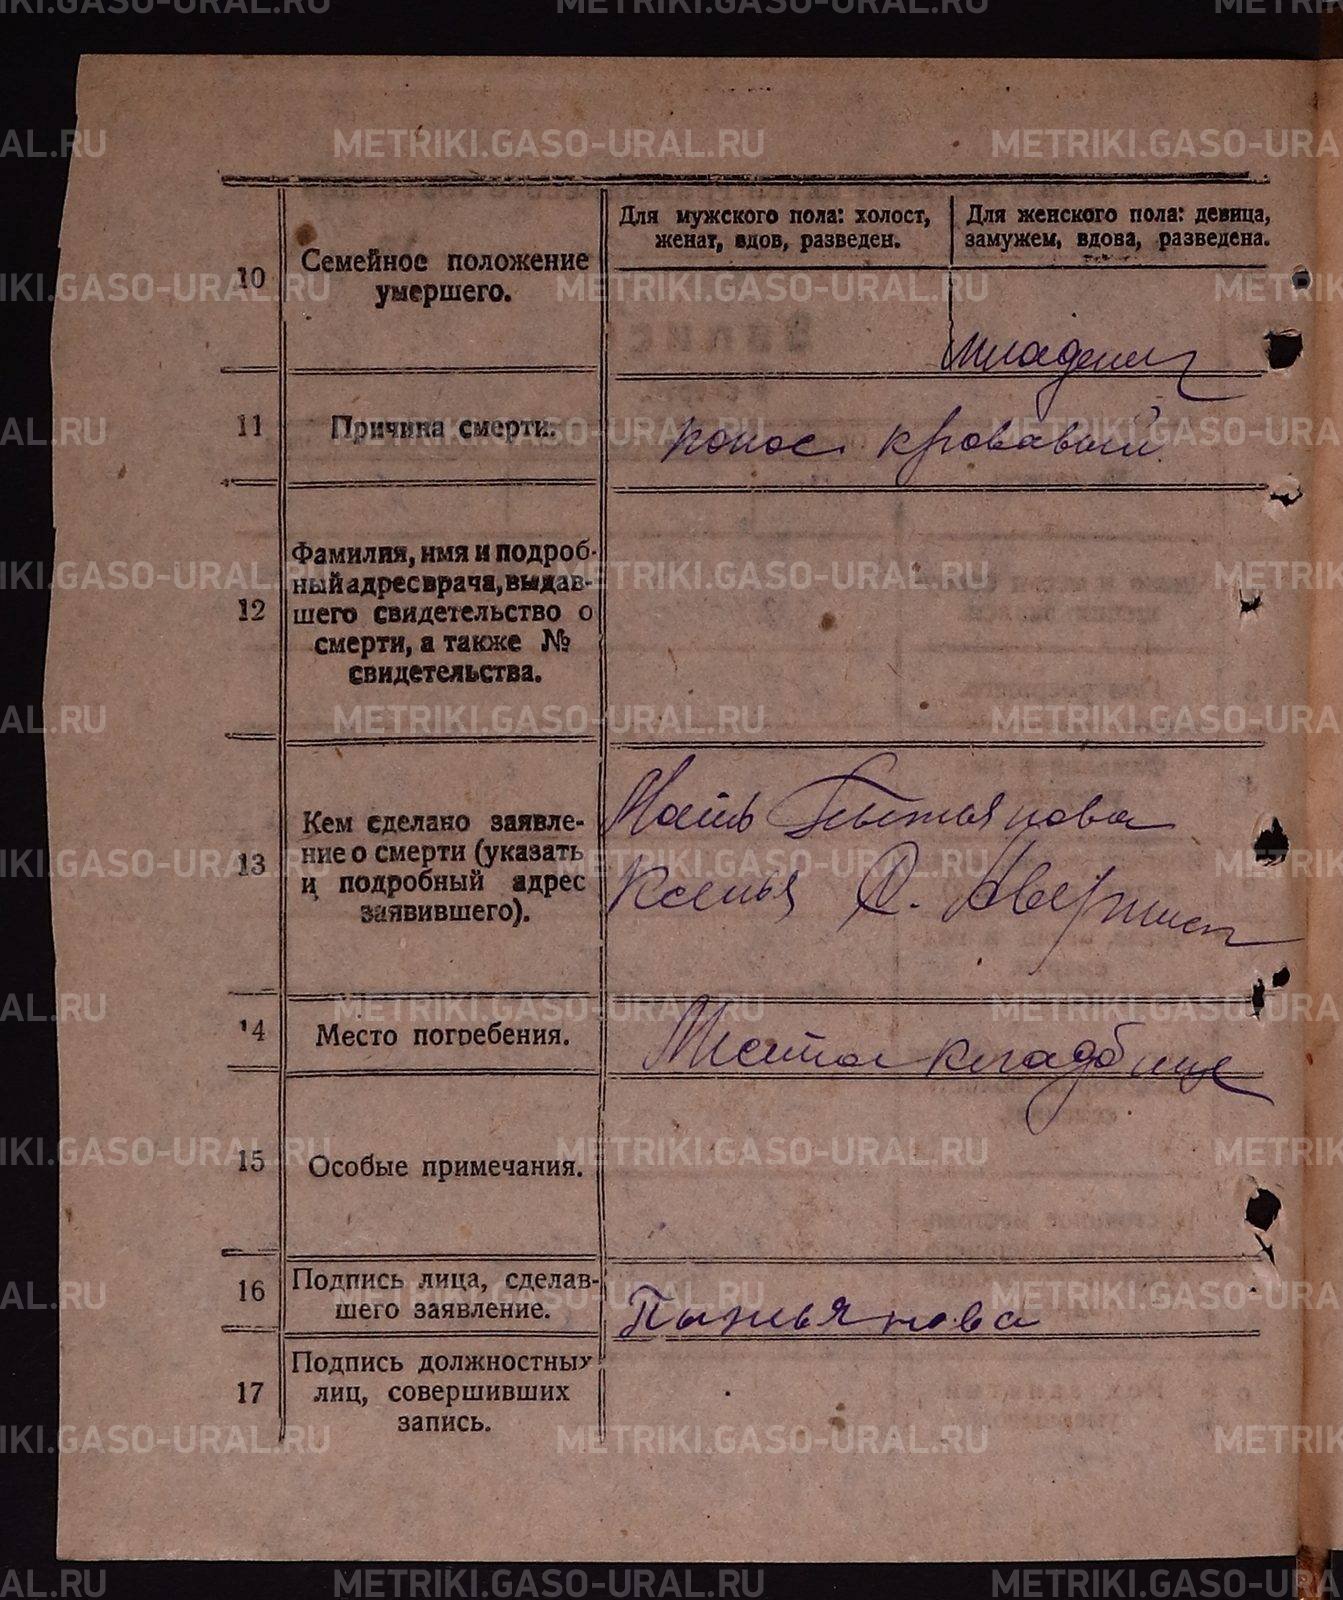 Для мужского пола: холост,
женат, вдов, разведен.
Для женского пола: девица,
замужем, вдова, разведена.
10
Семейное положение
умершего.
младенец
11
Причина смерти.
понос кровавый
12
Фамилия, имя и подроб-
ный адрес врача, выдав-
шего свидетельство о
смерти, а также №
свидетельства.
13
Кем сделано заявле-
ние о смерти (указать
и подробный адрес
заявившего).
Мать Пыжьянова
Ксенья
14
Место погребения.
кладбище
15
Особые примечания.
16
Подпись лица, сделав-
шего заявление.
Пыжьянова
17
Подпись должностных
лиц, совершивших
запись.
METRIKI.GASO-URAL.RU